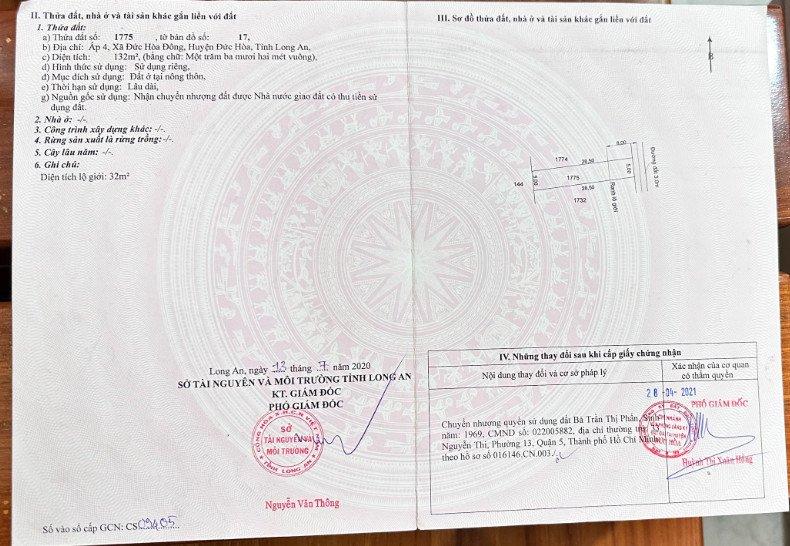 II. Thửa đất, nhà ở và tài sản khác gắn liền với đất
1. Thửa đất:
a) Thửa đất số: 1775, tờ bản đồ số: 17,
b) Địa chỉ: Ấp 4, Xã Đức Hòa Đông, Huyện Đức Hòa, Tỉnh Long An,
c) Diện tích: 132m², (bằng chữ: Một trăm ba mươi hai mét vuông),
d) Hình thức sử dụng: Sử dụng riêng,
đ) Mục đích sử dụng: Đất ở tại nông thôn,
e) Thời hạn sử dụng: Lâu dài,
g) Nguồn gốc sử dụng: Nhận chuyển nhượng đất được Nhà nước giao đất có thu tiền sử
dụng đất.
2. Nhà ở: -/-.
3. Công trình xây dựng khác: -/-.
4. Rừng sản xuất là rừng trồng: -/-.
5. Cây lâu năm: -/-.
6. Ghi chú:
Diện tích lộ giới: 32m²
Long An, ngày 13 tháng 7 năm 2020
SỞ TÀI NGUYÊN VÀ MÔI TRƯỜNG TỈNH LONG AN
KT. GIÁM ĐỐC
PHÓ GIÁM ĐỐC
CỘNG HÒA X.H.C.N VIỆT NAM
SỞ
TÀI NGUYÊN VÀ
MÔI TRƯỜNG
TỈNH LONG AN
Nguyễn Văn Thông
Số vào sổ cấp GCN: CS09405
III. Sơ đồ thửa đất, nhà ở và tài sản khác gắn liền với đất
B
8,00
1774
26,50
144
5,00
1775
5,00
26,50
1732
Ranh lộ giới
Đường đất 3.0m
IV. Những thay đổi sau khi cấp giấy chứng nhận
Nội dung thay đổi và cơ sở pháp lý
Xác nhận của cơ quan
có thẩm quyền
Chuyển nhượng quyền sử dụng đất Bà Trần Thị Phấn, Sinh
năm: 1969, CMND số: 022005882, địa chỉ thường trú
Nguyễn Thi, Phường 13, Quận 5, Thành phố Hồ Chí Minh
theo hồ sơ số 016146.CN.003
28 -04- 2021
PHÓ GIÁM ĐỐC
CHI NHÁNH
ĐỨC HÒA
Huỳnh Thị Xuân Hồng